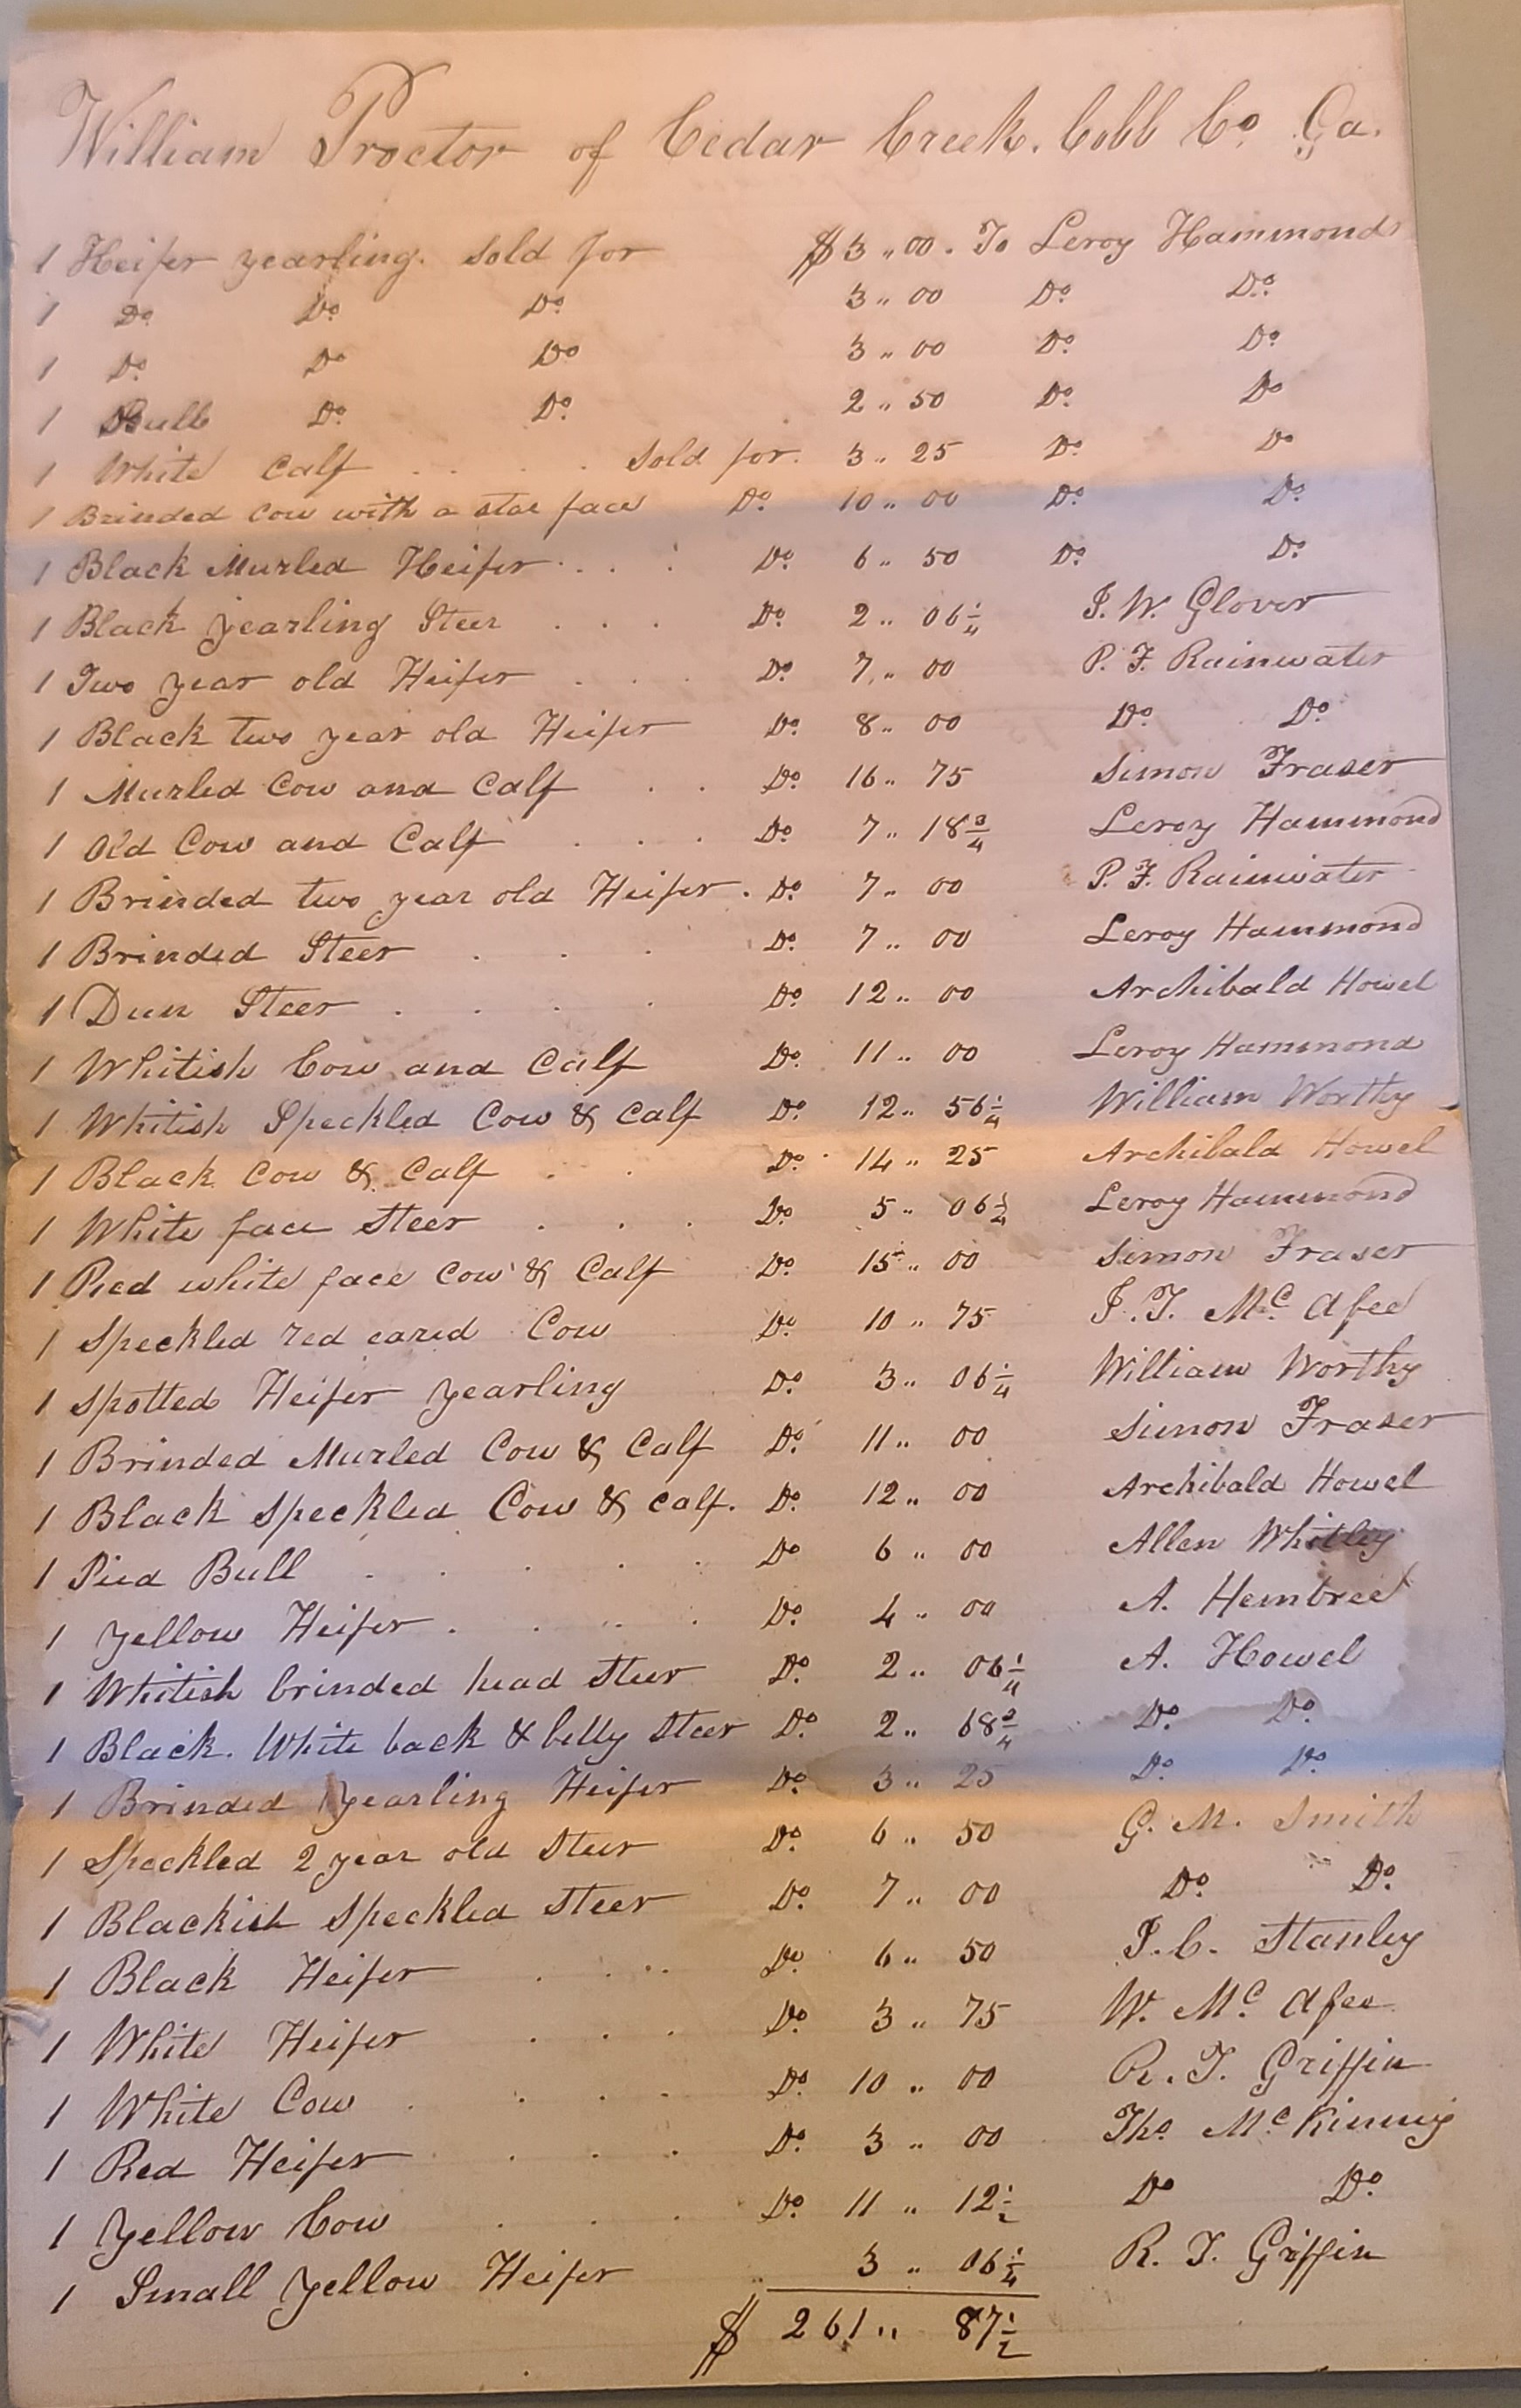 William Proctor of Cedar Creek. Cobb Co. Ga.
1 Heifer yearling. Sold for $3 ,, 00. To Leroy Hammond
1 Do. Do. Do. 3 ,, 00 Do. Do.
1 Do. Do Do 3 ,, 00 Do. Do.
1 Bull Do. Do. 2 ,, 50 Do. Do
1 White Calf . . . . Sold for. 3 ,, 25 Do. Do
1 Brinded Cow with a star face Do. 10 ,, 00 Do. Do.
1 Black Murled Heifer . . . Do. 6 ,, 50 Do. Do.
1 Black yearling Steer . . . Do. 2 ,, 06 1/4 J. W. Glover
1 Two year old Heifer . . . Do. 7 ,, 00 P. F. Rainwater
1 Black two year old Heifer Do. 8 ,, 00 Do. Do.
1 Murled Cow and Calf . . Do. 16 ,, 75 Simon Fraser
1 Old Cow and Calf . . . Do. 7 ,, 18 3/4 Leroy Hammond
1 Brinded two year old Heifer . Do. 7 ,, 00 P. F. Rainwater
1 Brinded Steer . . . Do. 7 ,, 00 Leroy Hammond
1 Dun Steer . . . . Do. 12 ,, 00 Archibald Howel
1 Whitish Cow and Calf Do. 11 ,, 00 Leroy Hammond
1 Whitish Speckled Cow & Calf Do. 12 ,, 56 1/4 William Worthy
1 Black Cow & Calf . . Do. 14 ,, 25 Archibald Howel
1 White face Steer . . . Do 5 ,, 06 1/4 Leroy Hammond
1 Pied white face Cow & Calf Do. 15 ,, 00 Simon Fraser
1 Speckled red eared Cow Do. 10 ,, 75 J. T. McAfee
1 Spotted Heifer yearling Do. 3 ,, 06 1/4 William Worthy
1 Brinded Murled Cow & Calf Do. 11 ,, 00 Simon Fraser
1 Black Speckled Cow & calf. Do. 12 ,, 00 Archibald Howel
1 Pied Bull . . . . Do 6 ,, 00 Allen Whitley
1 Yellow Heifer . . . . Do. 4 ,, 00 A. Hembree
1 Whitish brinded head Steer Do. 2 ,, 06 1/4 A. Howel
1 Black. White back & belly Steer Do 2 ,, 68 3/4 Do. Do.
1 Brinded Yearling Heifer Do. 3 ,, 25 Do. Do.
1 Speckled 2 year old Steer Do. 6 ,, 50 G. M. Smith
1 Blackish Speckled Steer Do. 7 ,, 00 Do. Do.
1 Black Heifer . . . Do. 6 ,, 50 J. C. Stanley
1 White Heifer . . . Do. 3 ,, 75 W. McAfee
1 White Cow . . . . Do. 10 ,, 00 R. T. Griffin
1 Red Heifer . . . Do. 3 ,, 00 Tho. McKinney
1 Yellow Cow . . . Do. 11 ,, 12 1/2 Do Do.
1 Small Yellow Heifer ,, 3 ,, 06 1/4 R. T. Griffin
$ 261 ,, 87 1/2